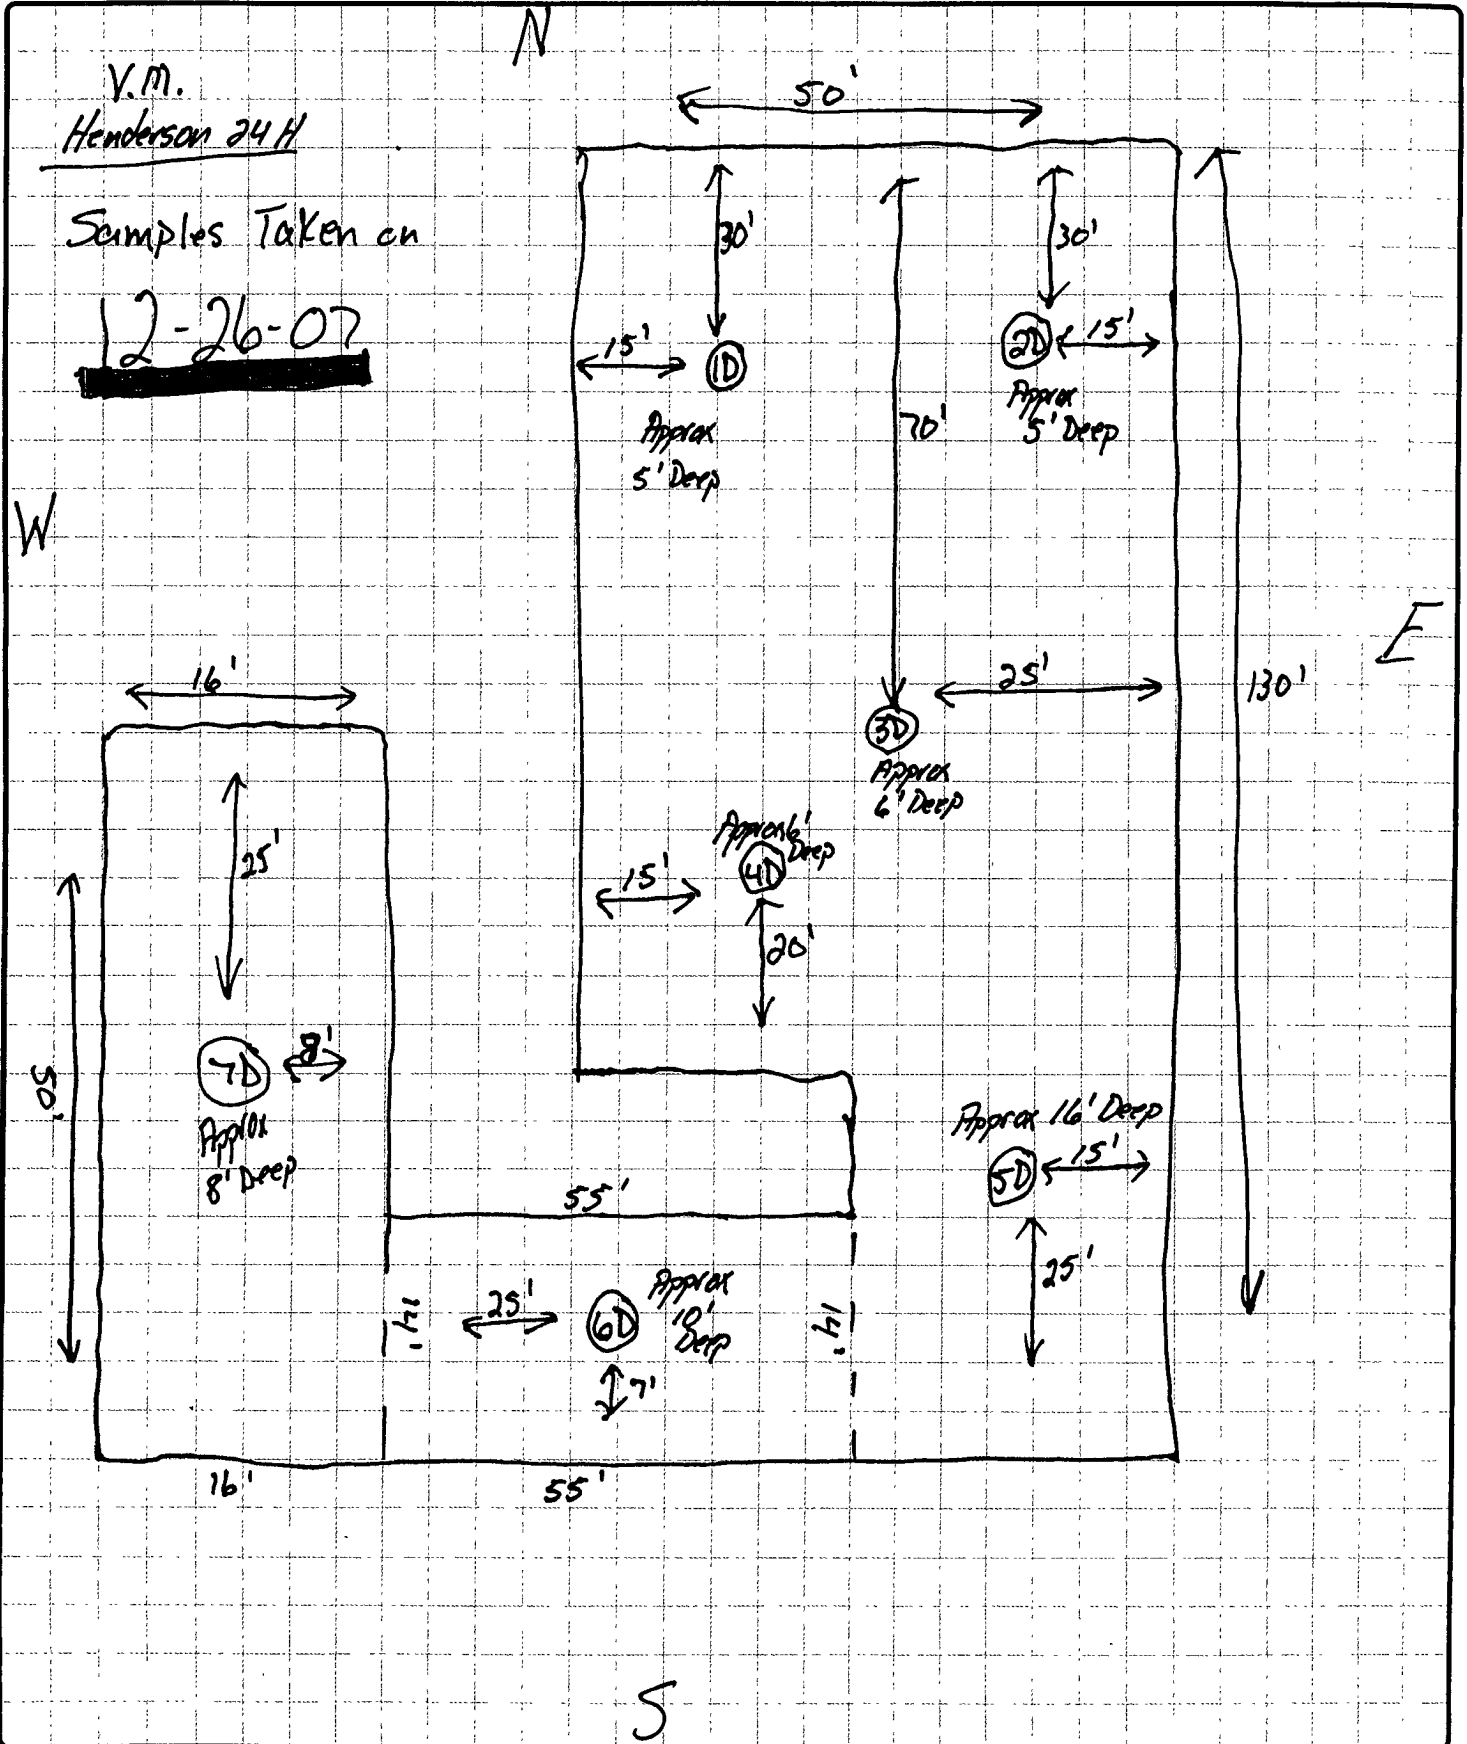 N
V.M.
Henderson 24H
Samples Taken on
12-26-07
50'
30'
30'
15'
1D
Approx
5' Deep
2D
15'
Approx
5' Deep
70'
W
E
130'
16'
25'
3D
Approx
6' Deep
25'
Approx 6'
Deep
4D
15'
20'
50'
7D
8'
Approx
8' Deep
Approx 16' Deep
5D
15'
25'
55'
14'
25'
6D
Approx
10'
Deep
7'
14'
16'
55'
S